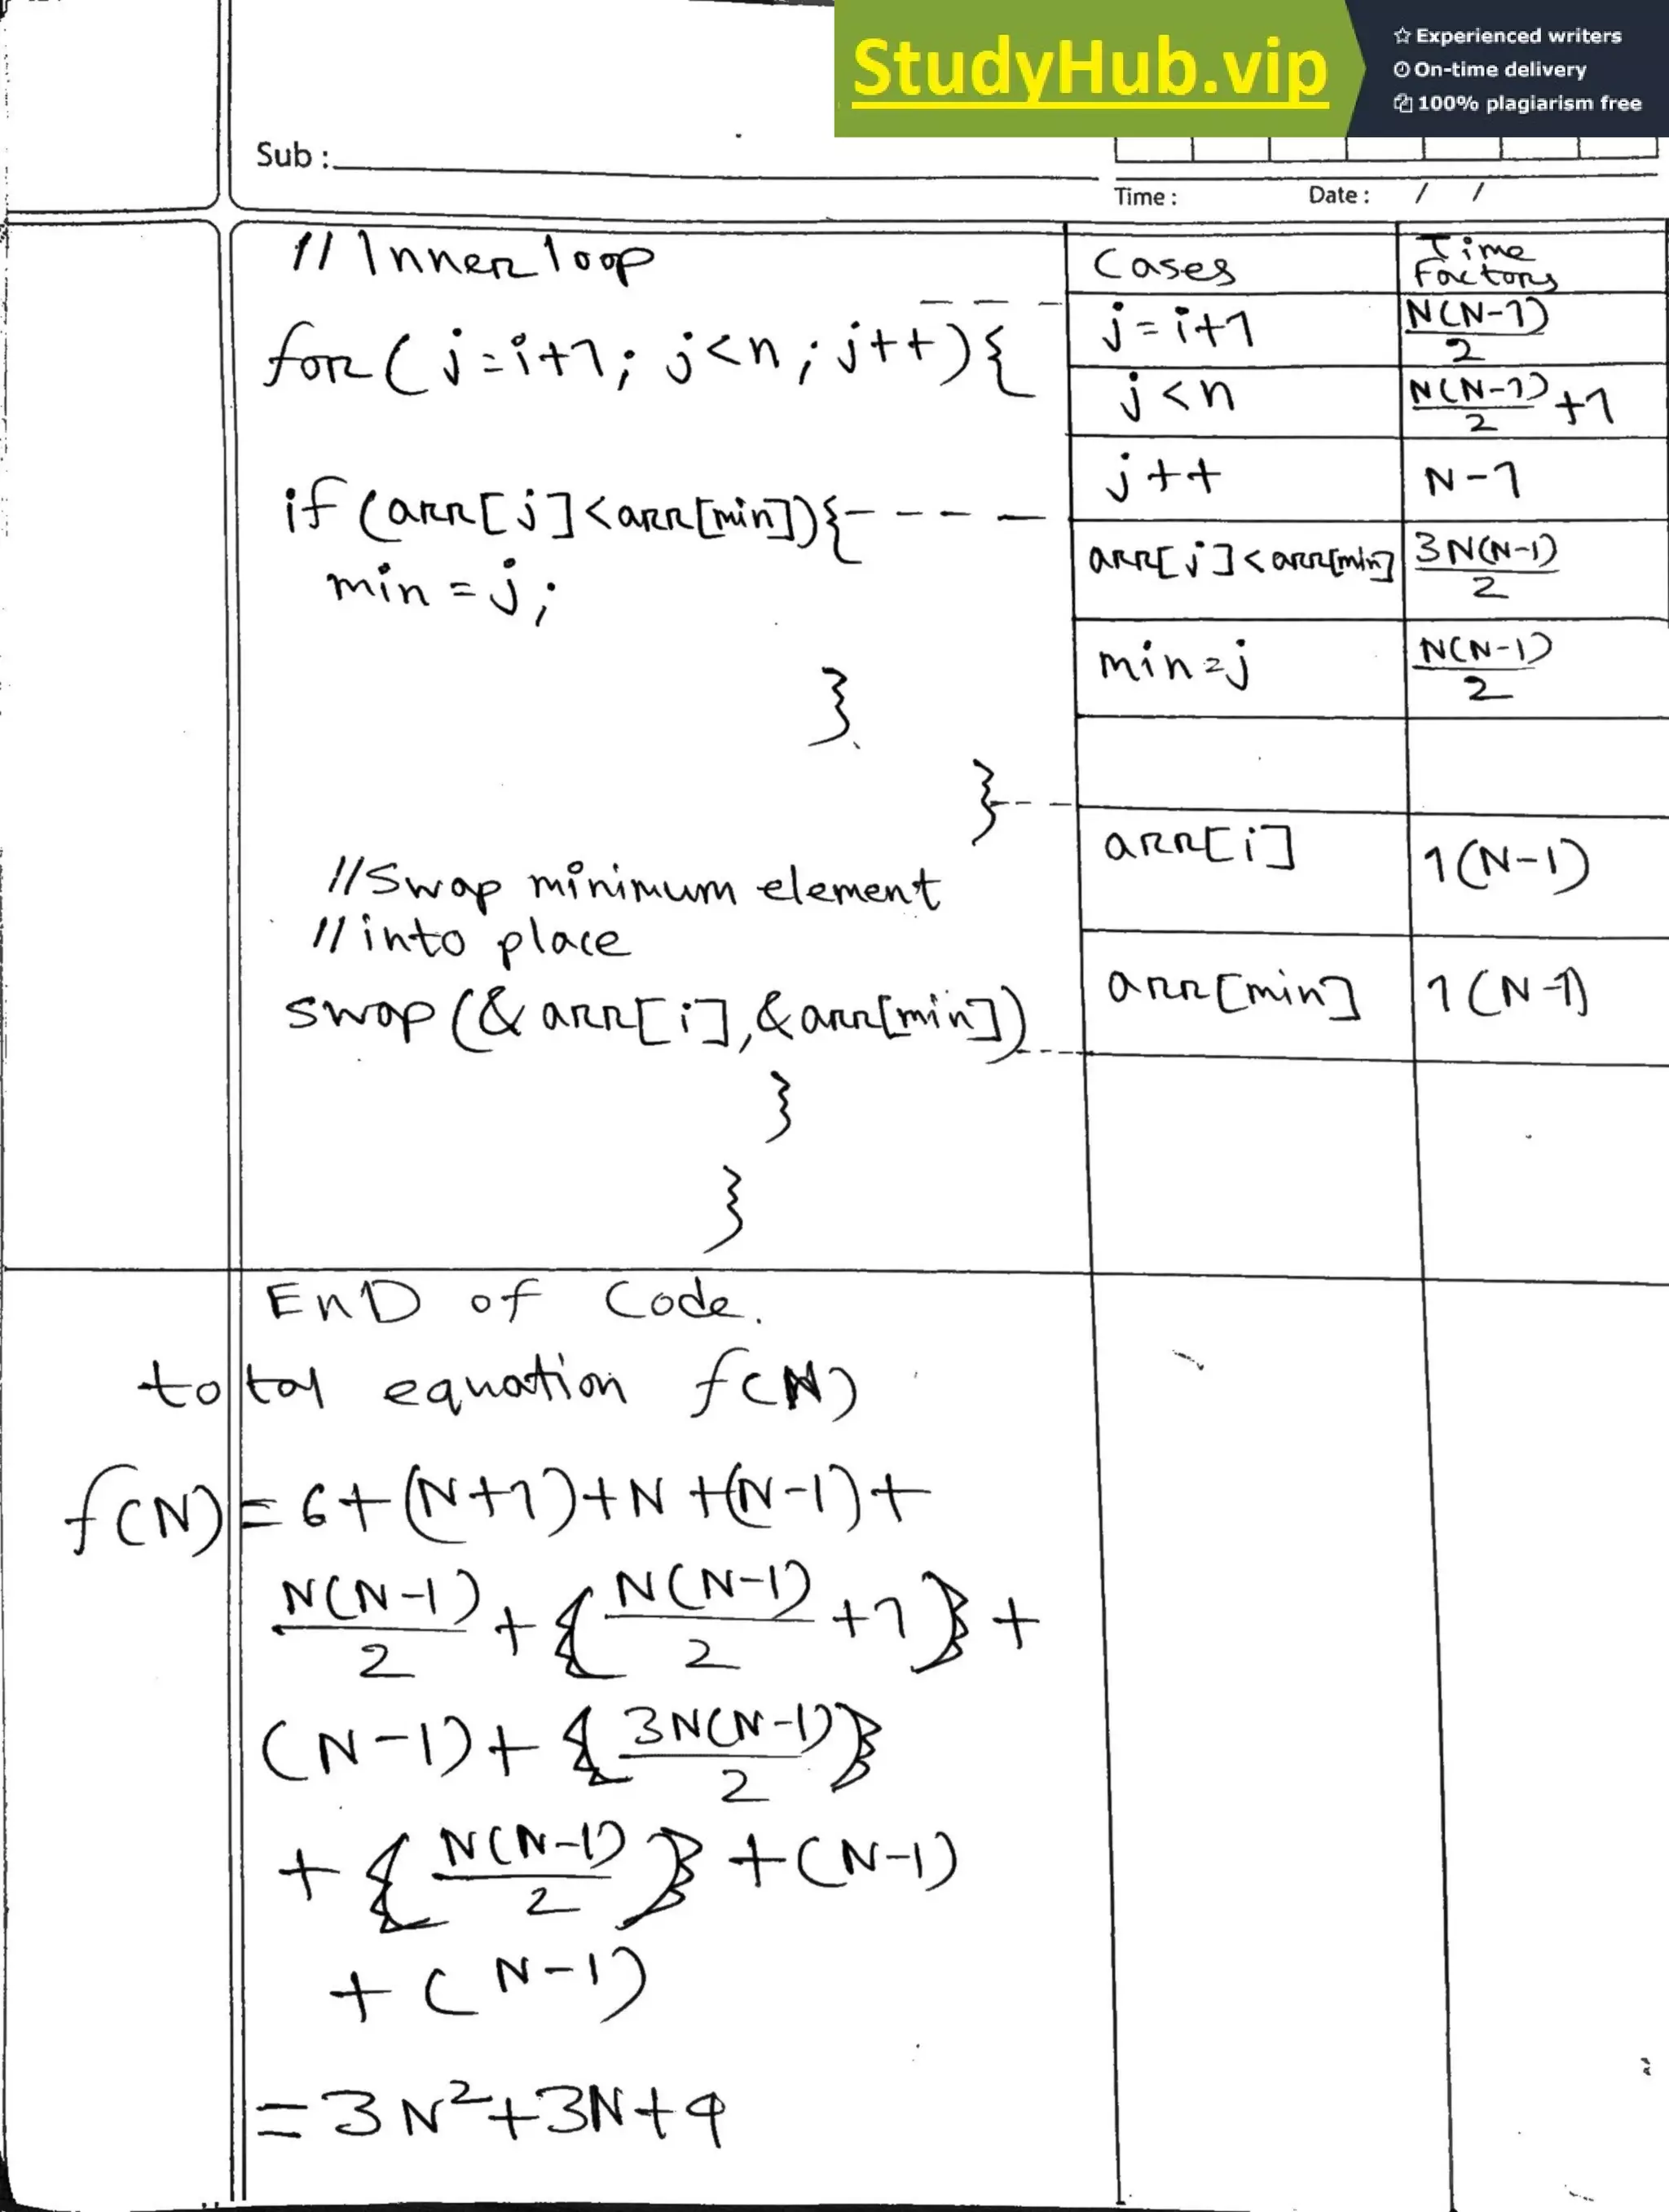 StudyHub.vip
☆ Experienced writers
On-time delivery
100% plagiarism free
Sub :
Time :
Date : / /
// Inner loop
for ( j = i+1; j<n; j++){
if (arr[j]<arr[min]){
min = j;
}
}
//Swap minimum element
// into place
swap (& arr[i], & arr[min])
}
}
Cases Time Factors
j = i+1 N(N-1)/2
j < n N(N-1)/2 +1
j++ N-1
arr[j]<arr[min] 3N(N-1)/2
min=j N(N-1)/2
arr[i] 1(N-1)
arr[min] 1(N-1)
EnD of Code.
total equation f(N)
f(N) = 6+(N+1)+N+(N-1)+
N(N-1)/2 + {N(N-1)/2 +1} +
(N-1)+ {3N(N-1)/2}
+ {N(N-1)/2} +(N-1)
+ (N-1)
= 3N²+3N+4